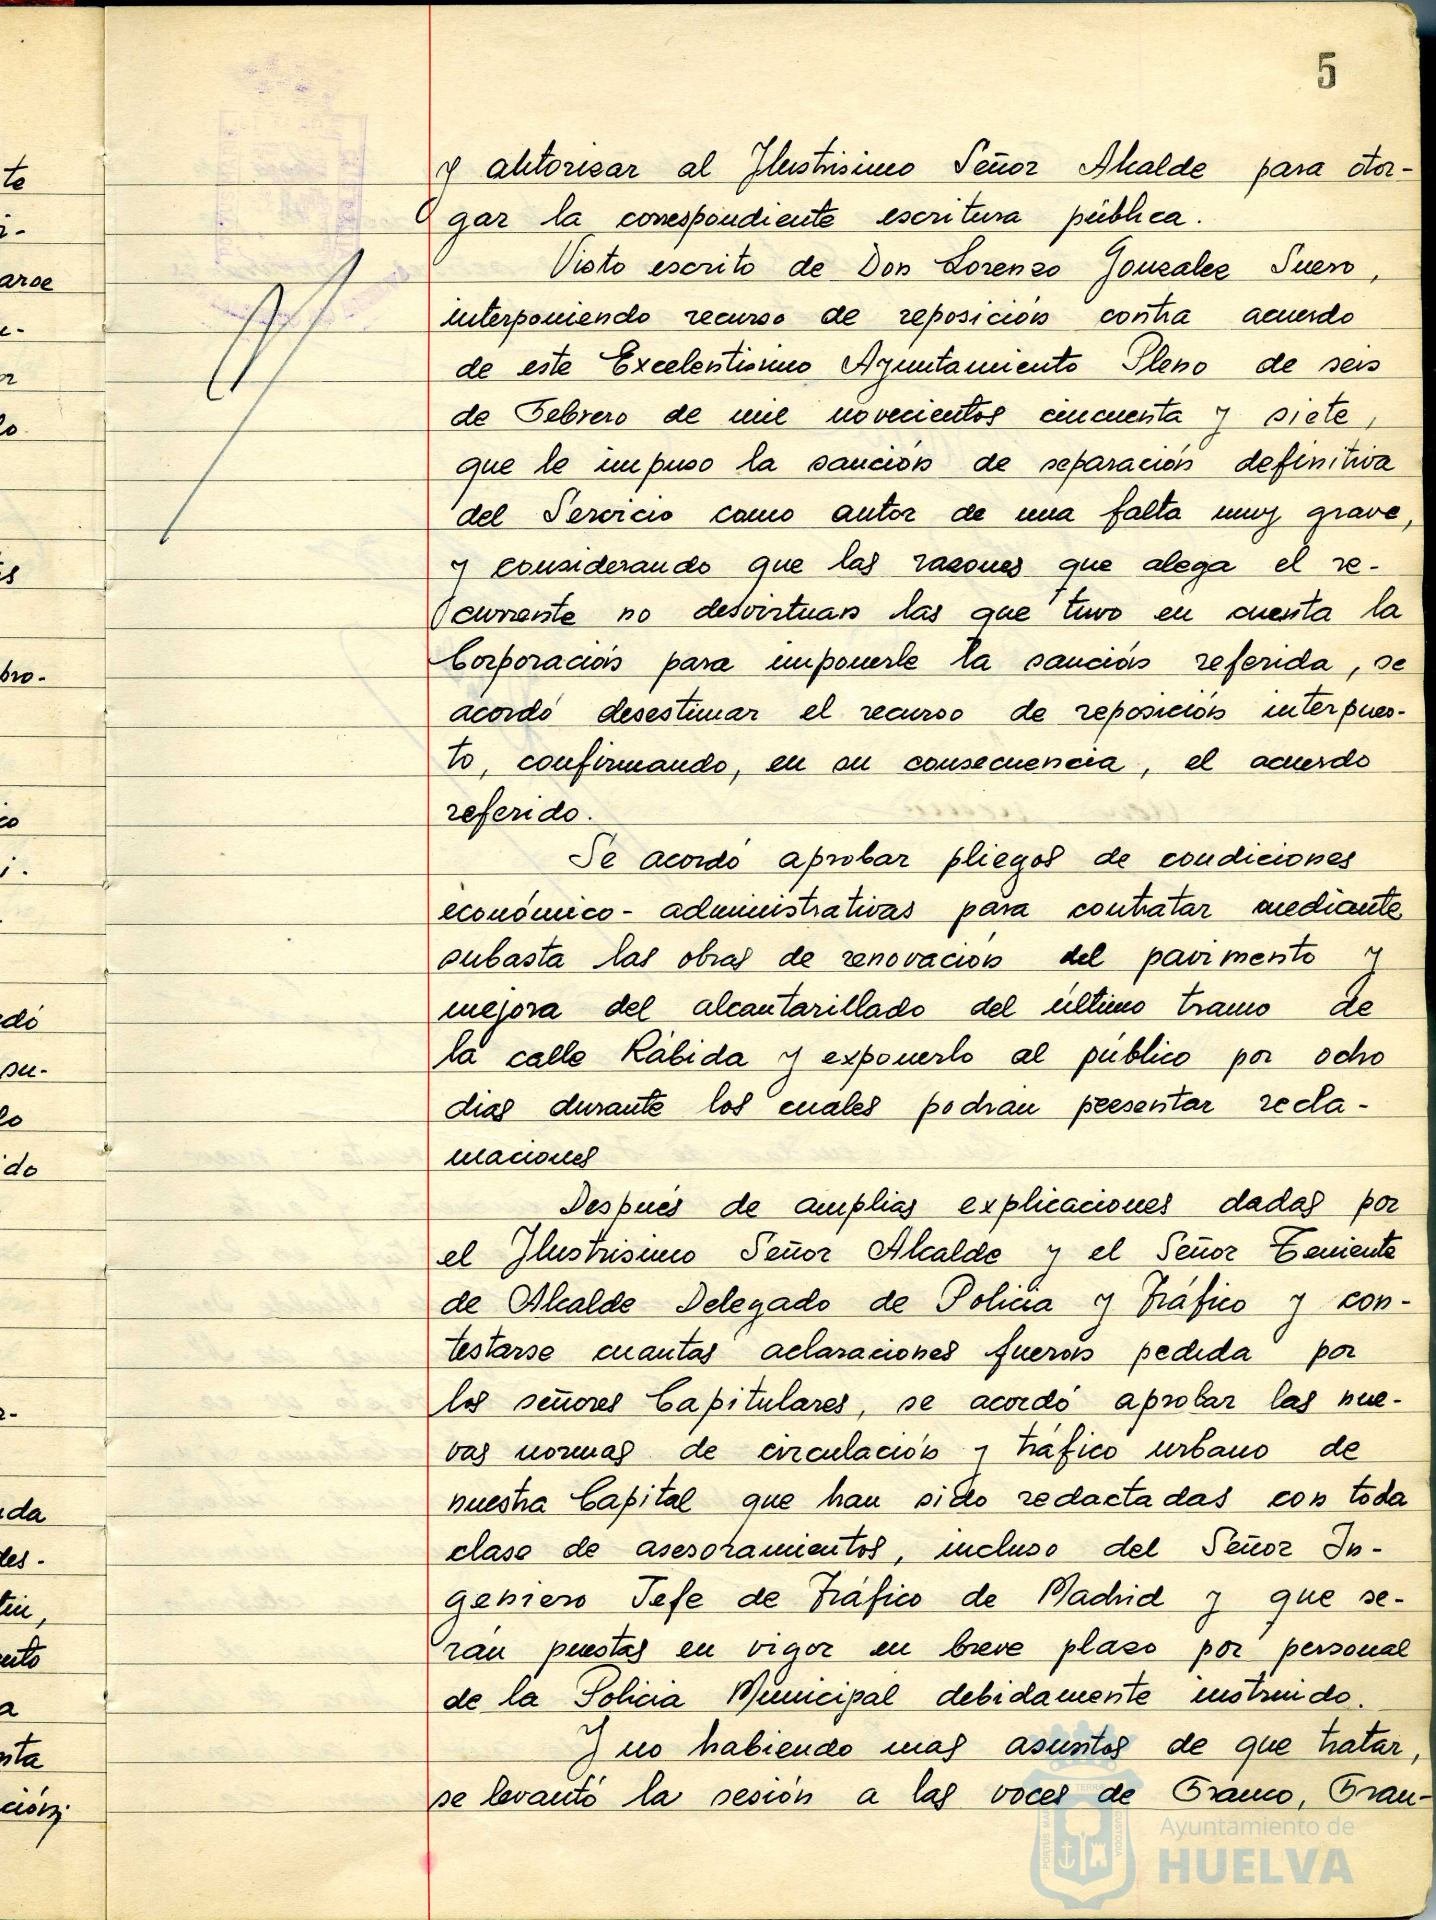 5
y autorizar al Ilustrisimo Señor Alcalde para otor-
gar la correspondiente escritura pública.
Visto escrito de Don Lorenzo Gonzalez Suero,
interponiendo recurso de reposición contra acuerdo
de este Excelentisimo Ayuntamiento Pleno de seis
de Febrero de mil novecientos cincuenta y siete,
que le impuso la sanción de separación definitiva
del Servicio como autor de una falta muy grave,
y considerando que las razones que alega el re-
currente no desvirtuan las que tuvo en cuenta la
Corporación para imponerle la sanción referida, se
acordó desestimar el recurso de reposición interpues-
to, confirmando, en su consecuencia, el acuerdo
referido.
Se acordó aprobar pliegos de condiciones
económico-administrativas para contratar mediante
subasta las obras de renovación del pavimento y
mejora del alcantarillado del último tramo de
la calle Rábida y exponerlo al público por ocho
dias durante los cuales podran peesentar recla-
maciones
Después de amplias explicaciones dadas por
el Ilustrisimo Señor Alcalde y el Señor Teniente
de Alcalde Delegado de Policia y Tráfico y con-
testarse cuantas aclaraciones fueron pedida por
los señores Capitulares, se acordó aprobar las nue-
vas normas de circulación y tráfico urbano de
nuestra Capital que han sido redactadas con toda
clase de asesoramientos, incluso del Señor In-
geniero Jefe de Tráfico de Madrid y que se-
rán puestas en vigor en breve plazo por personal
de la Policia Municipal debidamente instruido.
Y no habiendo mas asuntos de que tratar,
se levantó la sesión a las voces de Franco, Fran-
Ayuntamiento de
HUELVA